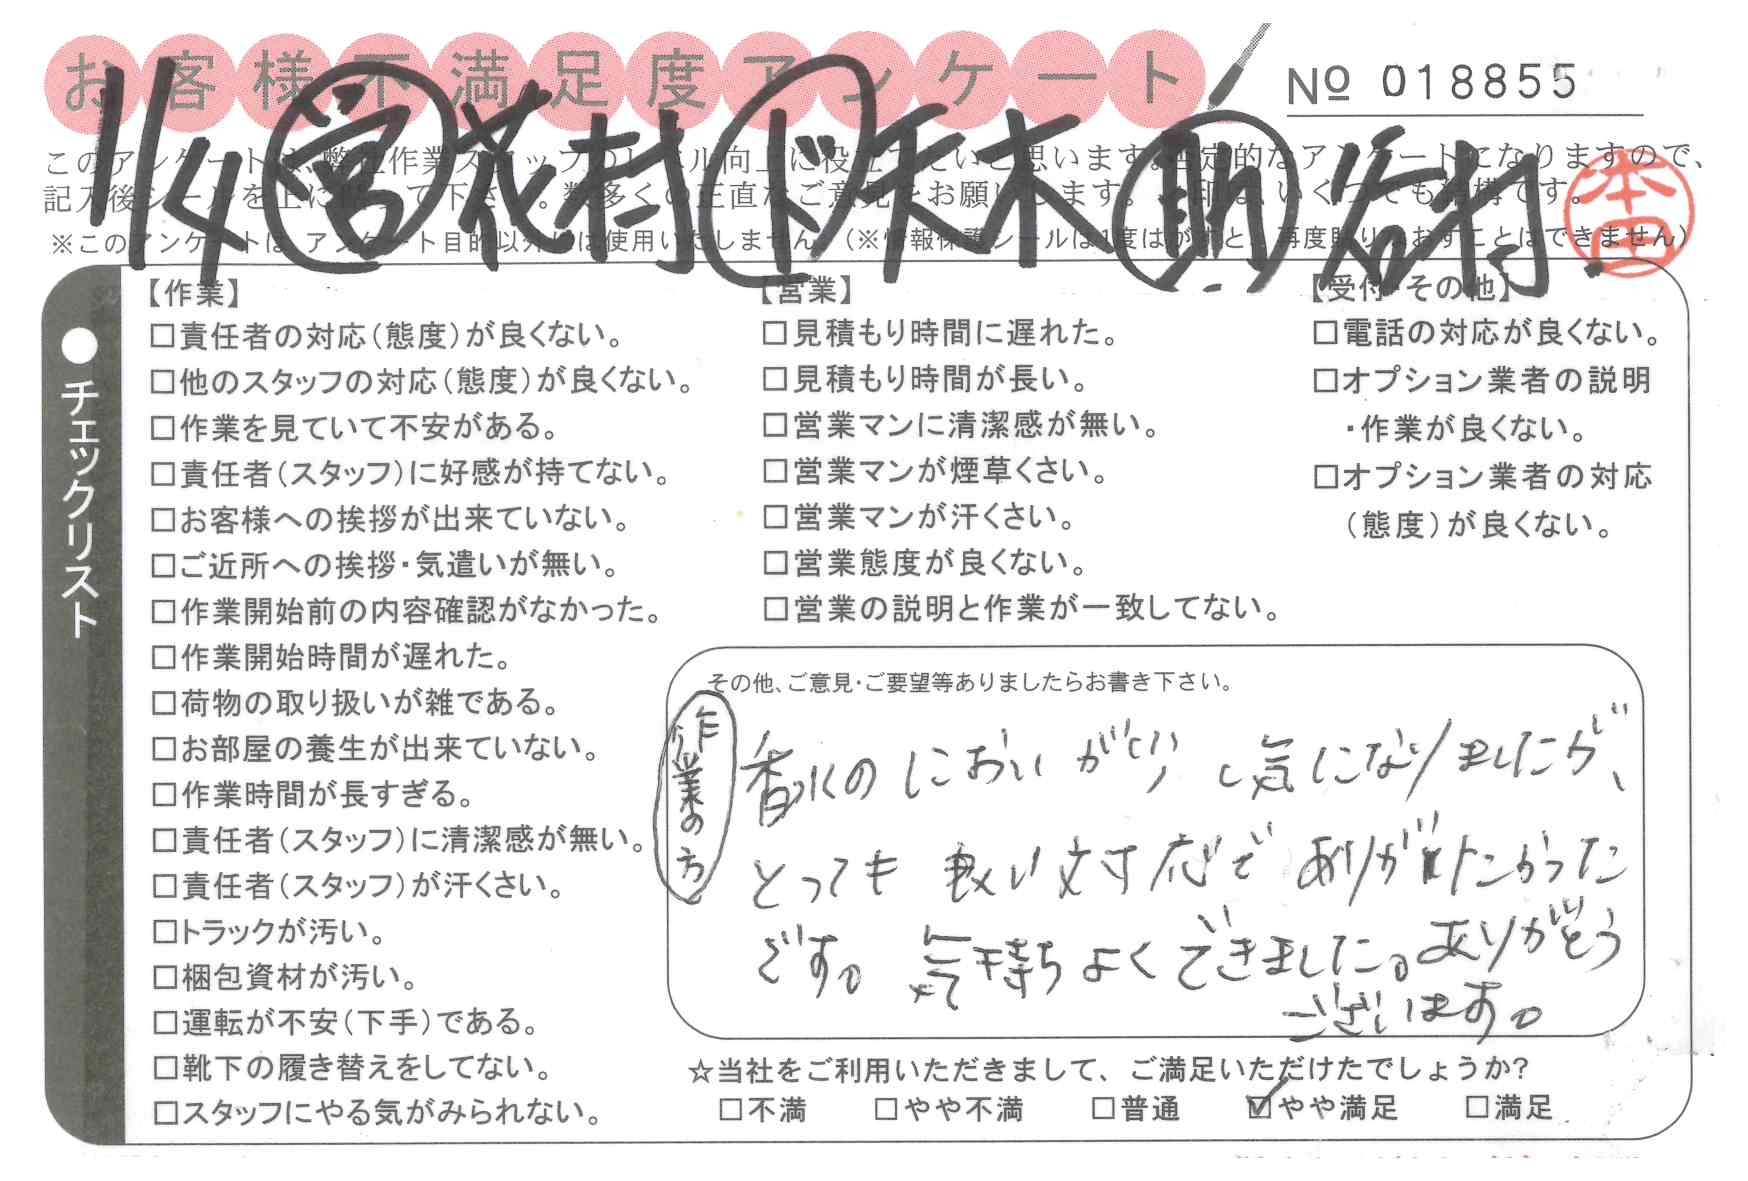 お客様不満足度アンケート
№ 018855
1/4 営 花村 ド 天木 助 谷村
本田
このアンケートは、弊社作業スタッフのレベル向上に役立てたいと思います。否定的なアンケートになりますので、
記入後シールを上に貼って下さい。数多くの正直なご意見をお願いします。 印は、いくつでも結構です。
※このアンケートは、アンケート目的以外には使用いたしません。(※情報保護シールは1度はがすと、再度貼りなおすことはできません)
●チェックリスト
【作業】
□責任者の対応(態度)が良くない。
□他のスタッフの対応(態度)が良くない。
□作業を見ていて不安がある。
□責任者(スタッフ)に好感が持てない。
□お客様への挨拶が出来ていない。
□ご近所への挨拶・気遣いが無い。
□作業開始前の内容確認がなかった。
□作業開始時間が遅れた。
□荷物の取り扱いが雑である。
□お部屋の養生が出来ていない。
□作業時間が長すぎる。
□責任者(スタッフ)に清潔感が無い。
□責任者(スタッフ)が汗くさい。
□トラックが汚い。
□梱包資材が汚い。
□運転が不安(下手)である。
□靴下の履き替えをしてない。
□スタッフにやる気がみられない。
【営業】
□見積もり時間に遅れた。
□見積もり時間が長い。
□営業マンに清潔感が無い。
□営業マンが煙草くさい。
□営業マンが汗くさい。
□営業態度が良くない。
□営業の説明と作業が一致してない。
【受付・その他】
□電話の対応が良くない。
□オプション業者の説明
・作業が良くない。
□オプション業者の対応
(態度)が良くない。
その他、ご意見・ご要望等ありましたらお書き下さい。
作業の方
香水のにおいが少し気になりましたが、
とっても良い対応でありがたかった
です。気持ちよくできました。ありがとう
ございます。
☆当社をご利用いただきまして、ご満足いただけたでしょうか?
□不満 □やや不満 □普通 ☑やや満足 □満足